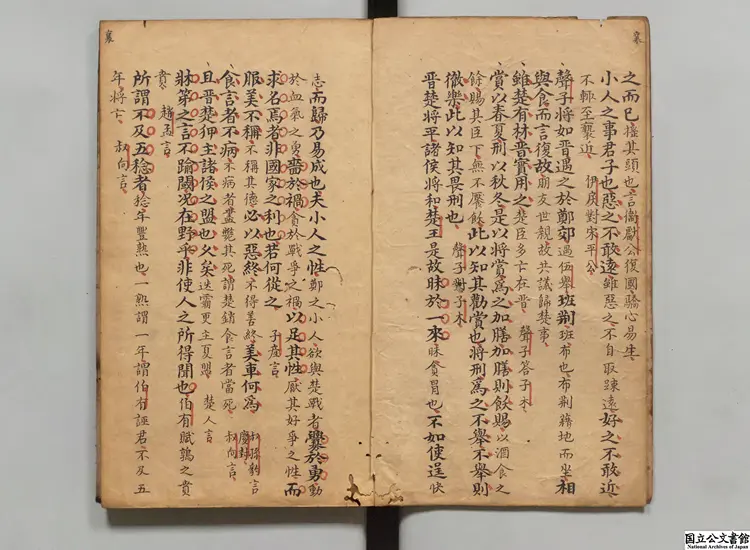 襄
之而已搤其頭也言衛獻公復國驕心易生
小人之事君子也惡之不敢遠雖惡之不自取踈遠好之不敢近
不輙至褻近 伊戾對宋平公
聲子將如晋遇之於鄭郊遇伍舉班荆班布也布荆藉地而坐相
與食而言復故朋友世親故共議歸楚事 聲子答子木
雖楚有林晋實用之楚臣多亡在晋
賞以春夏刑以秋冬是以將賞爲之加膳加膳則飫賜以酒食之
餘賜其臣下無不饜飫此以知其勸賞也將刑爲之不舉不舉則
徹樂此以知其畏刑也 聲子對子木
晋楚將平諸侯將和楚王是故昧於一來昧貪冒也不如使逞快
襄
志而歸乃易成也夫小人之性鄭之小人欲與楚戰者釁於勇動
於血氣之勇嗇於禍貪於戰爭之禍以足其性厭其好爭之性而
求名焉者非國家之利也若何從之 子産言
服美不稱不稱其德必以惡終不得善終美車何爲 叔孫豹言慶封
食言者不病不病者盡斃其死謂楚食言者當死 叔向言
且晋楚狎主諸侯之盟也久矣迭霸更主夏盟 楚人言
牀第之言不踰閾况在野乎非使人之所得聞也伯有賦鶉之賁
賁 趙孟言
所謂不及五稔者稔年豐熟也一熟謂一年謂伯有誣君不及五
年將亡 叔向言
国立公文書館
National Archives of Japan